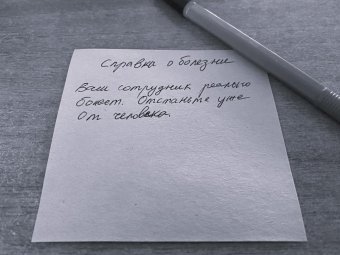 Справка о болезни
Ваш сотрудник реально
болеет. Отстаньте уже
от человека.